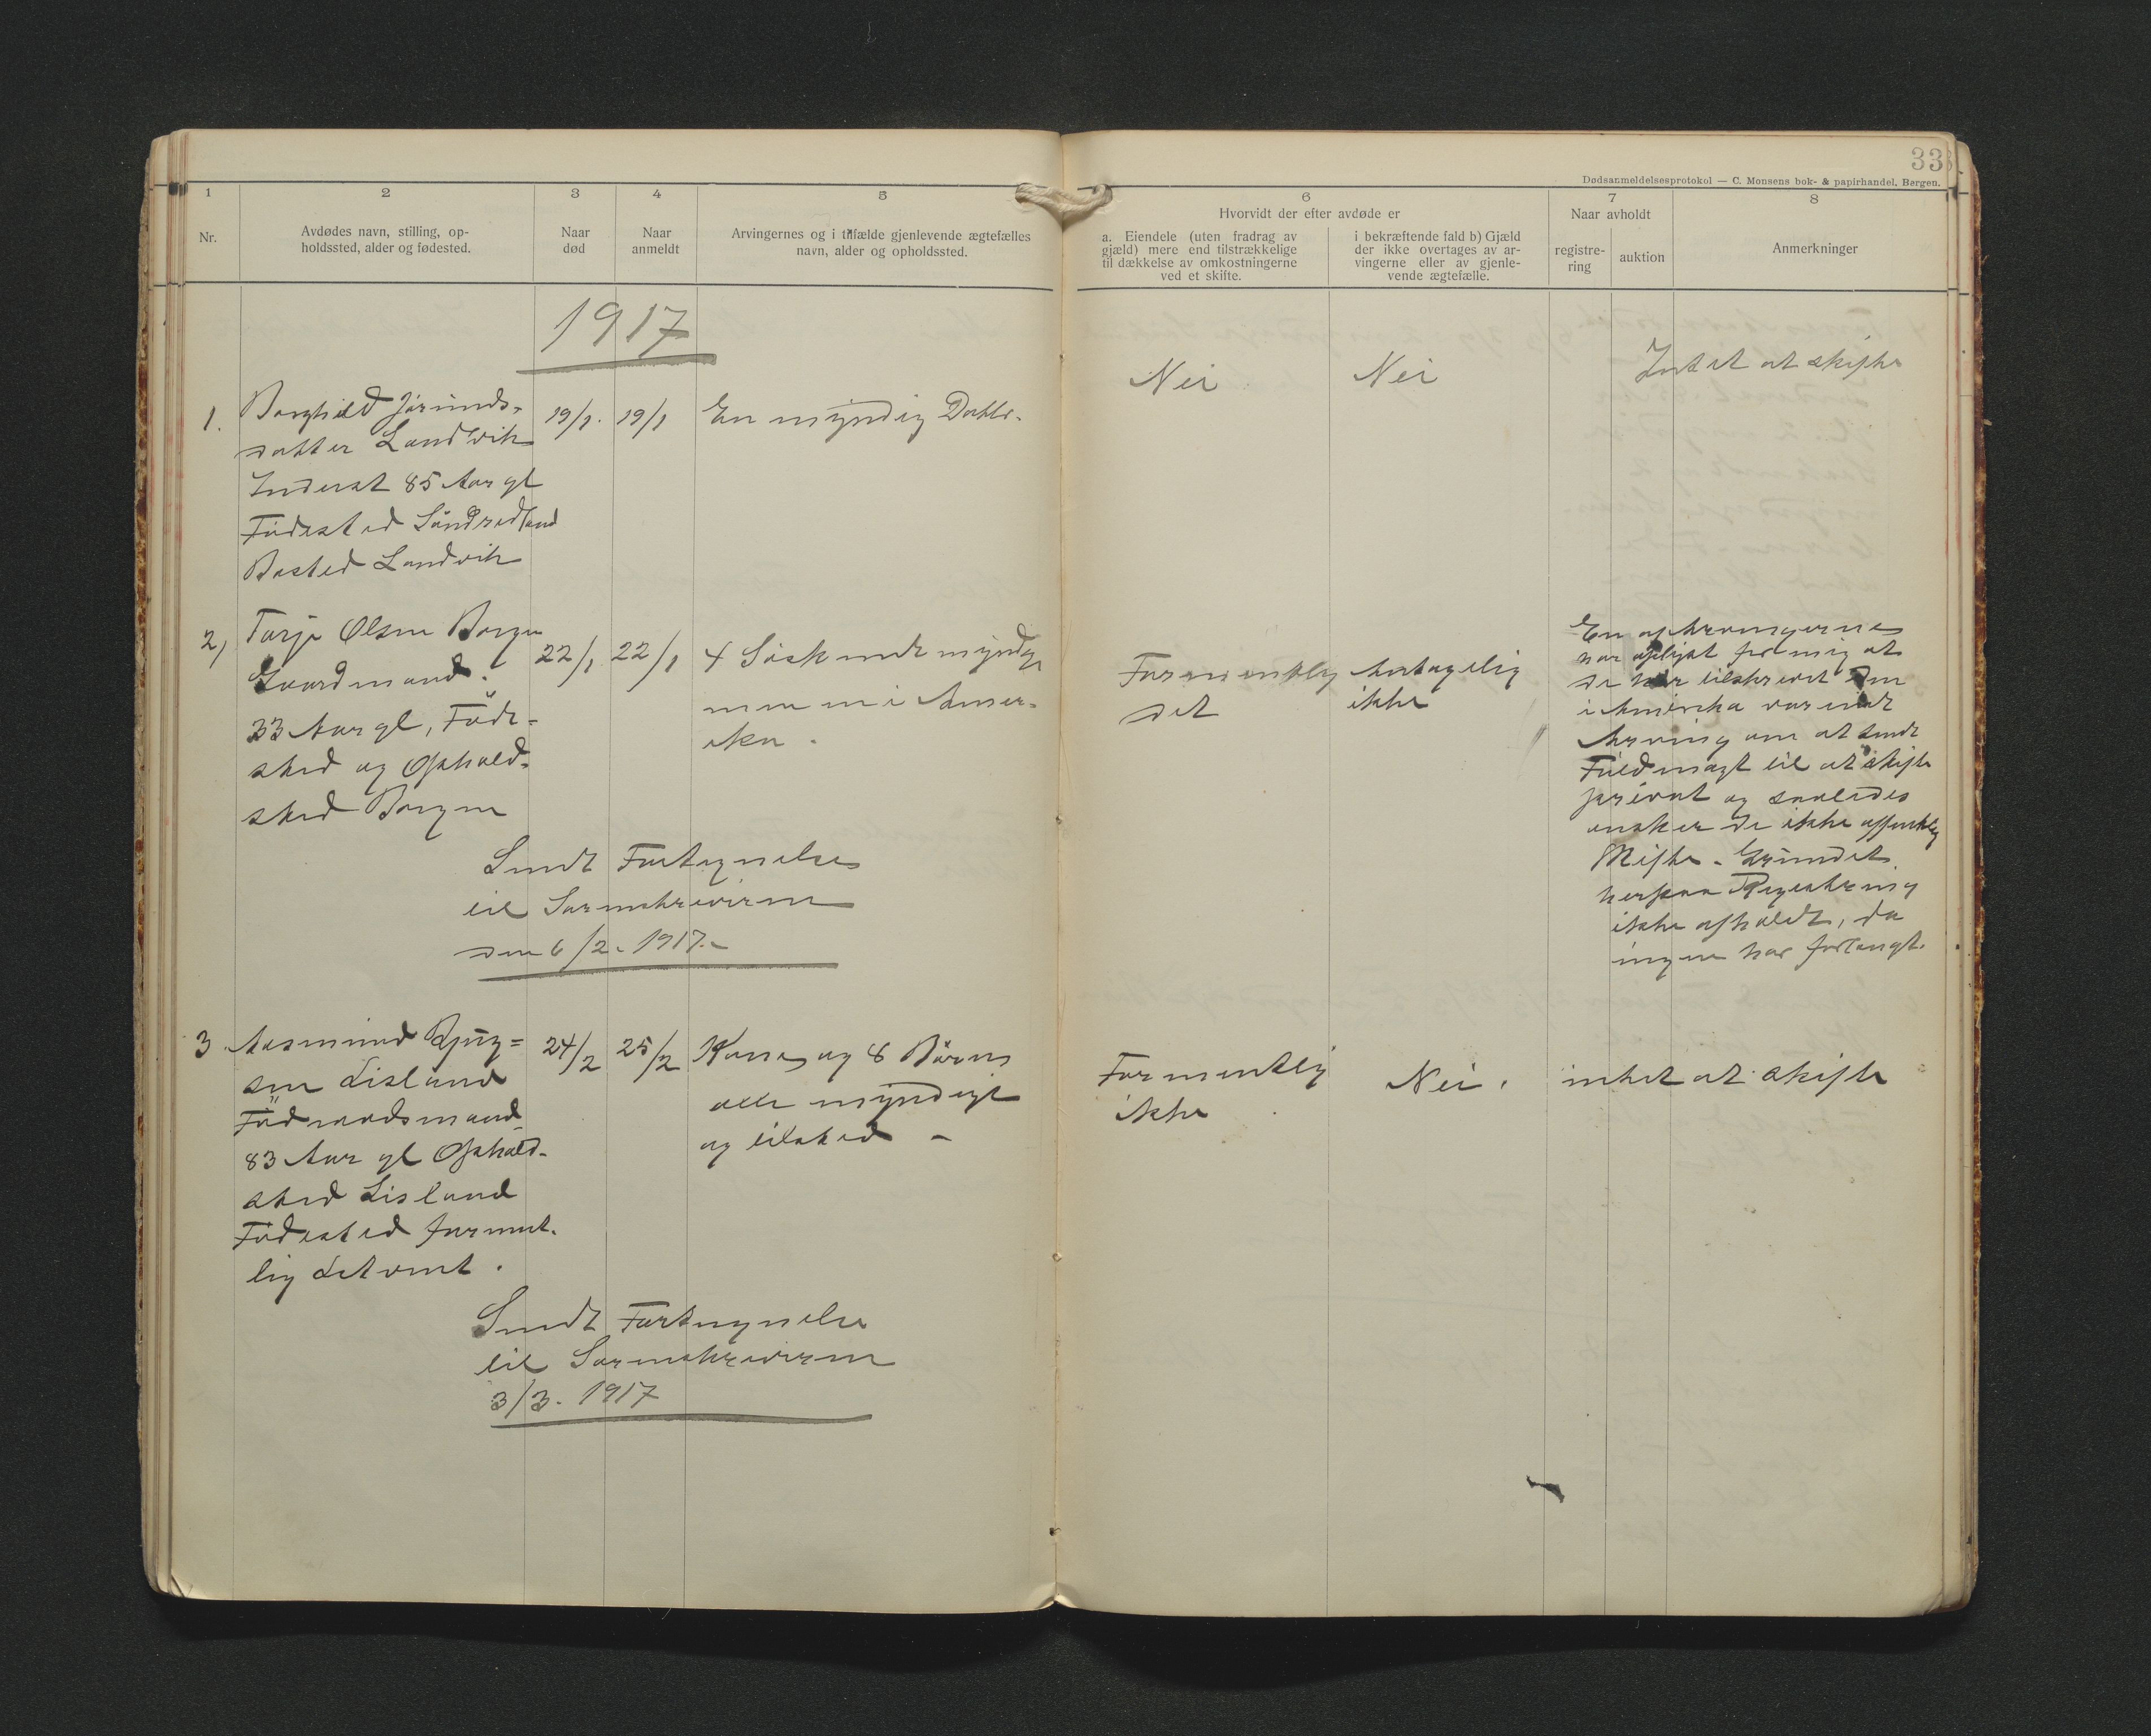 33
Dødsanmeldelsesprotokol — C. Monsens bok- & papirhandel, Bergen.
1
2
3
4
5
6
7
8
Nr.
Avdødes navn, stilling, op-
holdssted, alder og fødested.
Naar
død
Naar
anmeldt
Arvingernes og i tilfælde gjenlevende ægtefælles
navn, alder og opholdssted.
Hvorvidt der efter avdøde er
a. Eiendele (uten fradrag av
gjæld) mere end tilstrækkelige
til dækkelse av omkostningerne
ved et skifte.
i bekræftende fald b) Gjæld
der ikke overtages av ar-
vingerne eller av gjenle-
vende ægtefælle.
Naar avholdt
registre-
ring
auktion
Anmerkninger
1917
1.
Borghild Jörunds-
datter Landvik
Inderst 85 Aar gl
Födested
Bosted Landvik
19/1.
19/1
En myndig Datter.
Nei
Nei
Intet at skifte
2)
Tarje Olsen Borgen
Gaardmand.
33 Aar gl, Föde-
sted og Ophold-
sted Borgen
22/1
22/1
4 Söskende myndige
men en i Amer-
ika.
Formentlig
det
Antagelig
ikke
En af Arvingerne
har oplyst for mig at
de har tilskrevet den
i Amerika værende
Arving om at sende
Fuldmagt til at skifte
privat og saaledes
ønsker de ikke offentlig
Skifte. Grundet
herpaa Registrering
ikke afholdt, da
ingen har forlangt.
Sendt Fortegnelse
til Sorenskriveren
den 6/2. 1917.
3
Aasmund Gjug=
sen Lisland
Föderaadsmand
83 Aar gl Ophold-
sted Lisland
Födested forment-
lig
24/2
25/2
Kone og 8 Börn
alle myndige
og tilsted -
Formentlig
ikke
Nei.
intet at skifte
Sendt Fortegnelse
til Sorenskriveren
3/3. 1917